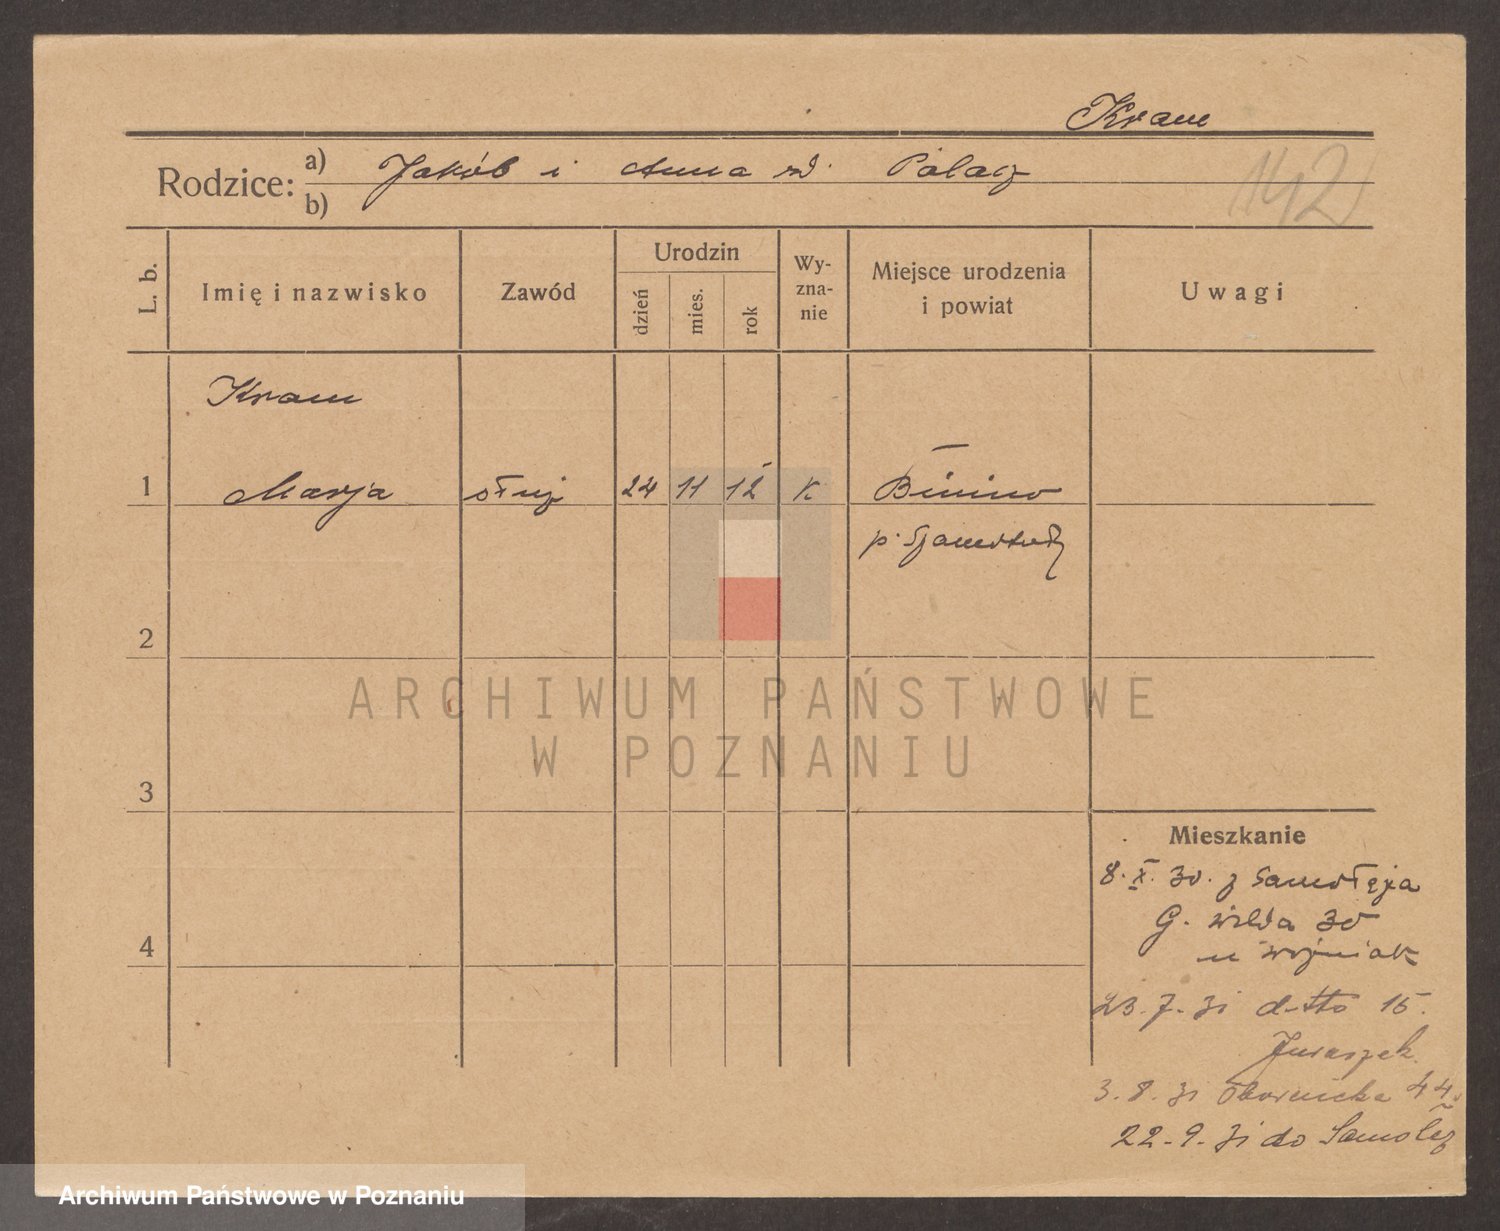 Kram
Rodzice: a) Jakób i Anna zd. Palacz
b)
142
L. b.
Imię i nazwisko
Zawód
Urodzin
dzień
mies.
rok
Wy-
zna-
nie
Miejsce urodzenia
i powiat
Uwagi
Kram
1 Marja służ 24 11 12 k Binino
p. Szamotuły
2
3
4
Mieszkanie
8. X. 30. z Samołęża
G. Wilda 30
u Woźniak
23. 7. 31 d-tto 15.
Juraszek
3. 8. 31 Obornicka 44
22. 9. 31 do Samolęż
ARCHIWUM PAŃSTWOWE
W POZNANIU
Archiwum Państwowe w Poznaniu